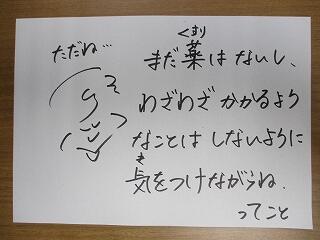 ただね…
くすり
まだ薬はないし、
わざわざかかるよう
なことはしないように
き
気をつけながらね.
ってこと